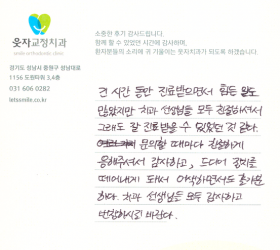 웃자교정치과
smile orthodontic clinic
경기도 성남시 중원구 성남대로
1156 도원타워 3,4층
031 606 0282
letssmile.co.kr
소중한 후기 감사드립니다.
함께 할 수 있었던 시간에 감사하며,
환자분들의 소리에 귀 기울이는 웃자치과가 되도록 하겠습니다.
긴 시간 동안 진료받으면서 힘든 일도
많았지만 치과 선생님들 모두 친절하셔서
그래도 잘 진료받을 수 있었던 것 같다.
문의할 때마다 친절하게
응해주셔서 감사하고, 드디어 장치를
떼어내게 돼서 어색하면서도 홀가분
하다. 치과 선생님들 모두 감사하고
번창하시길 바란다.